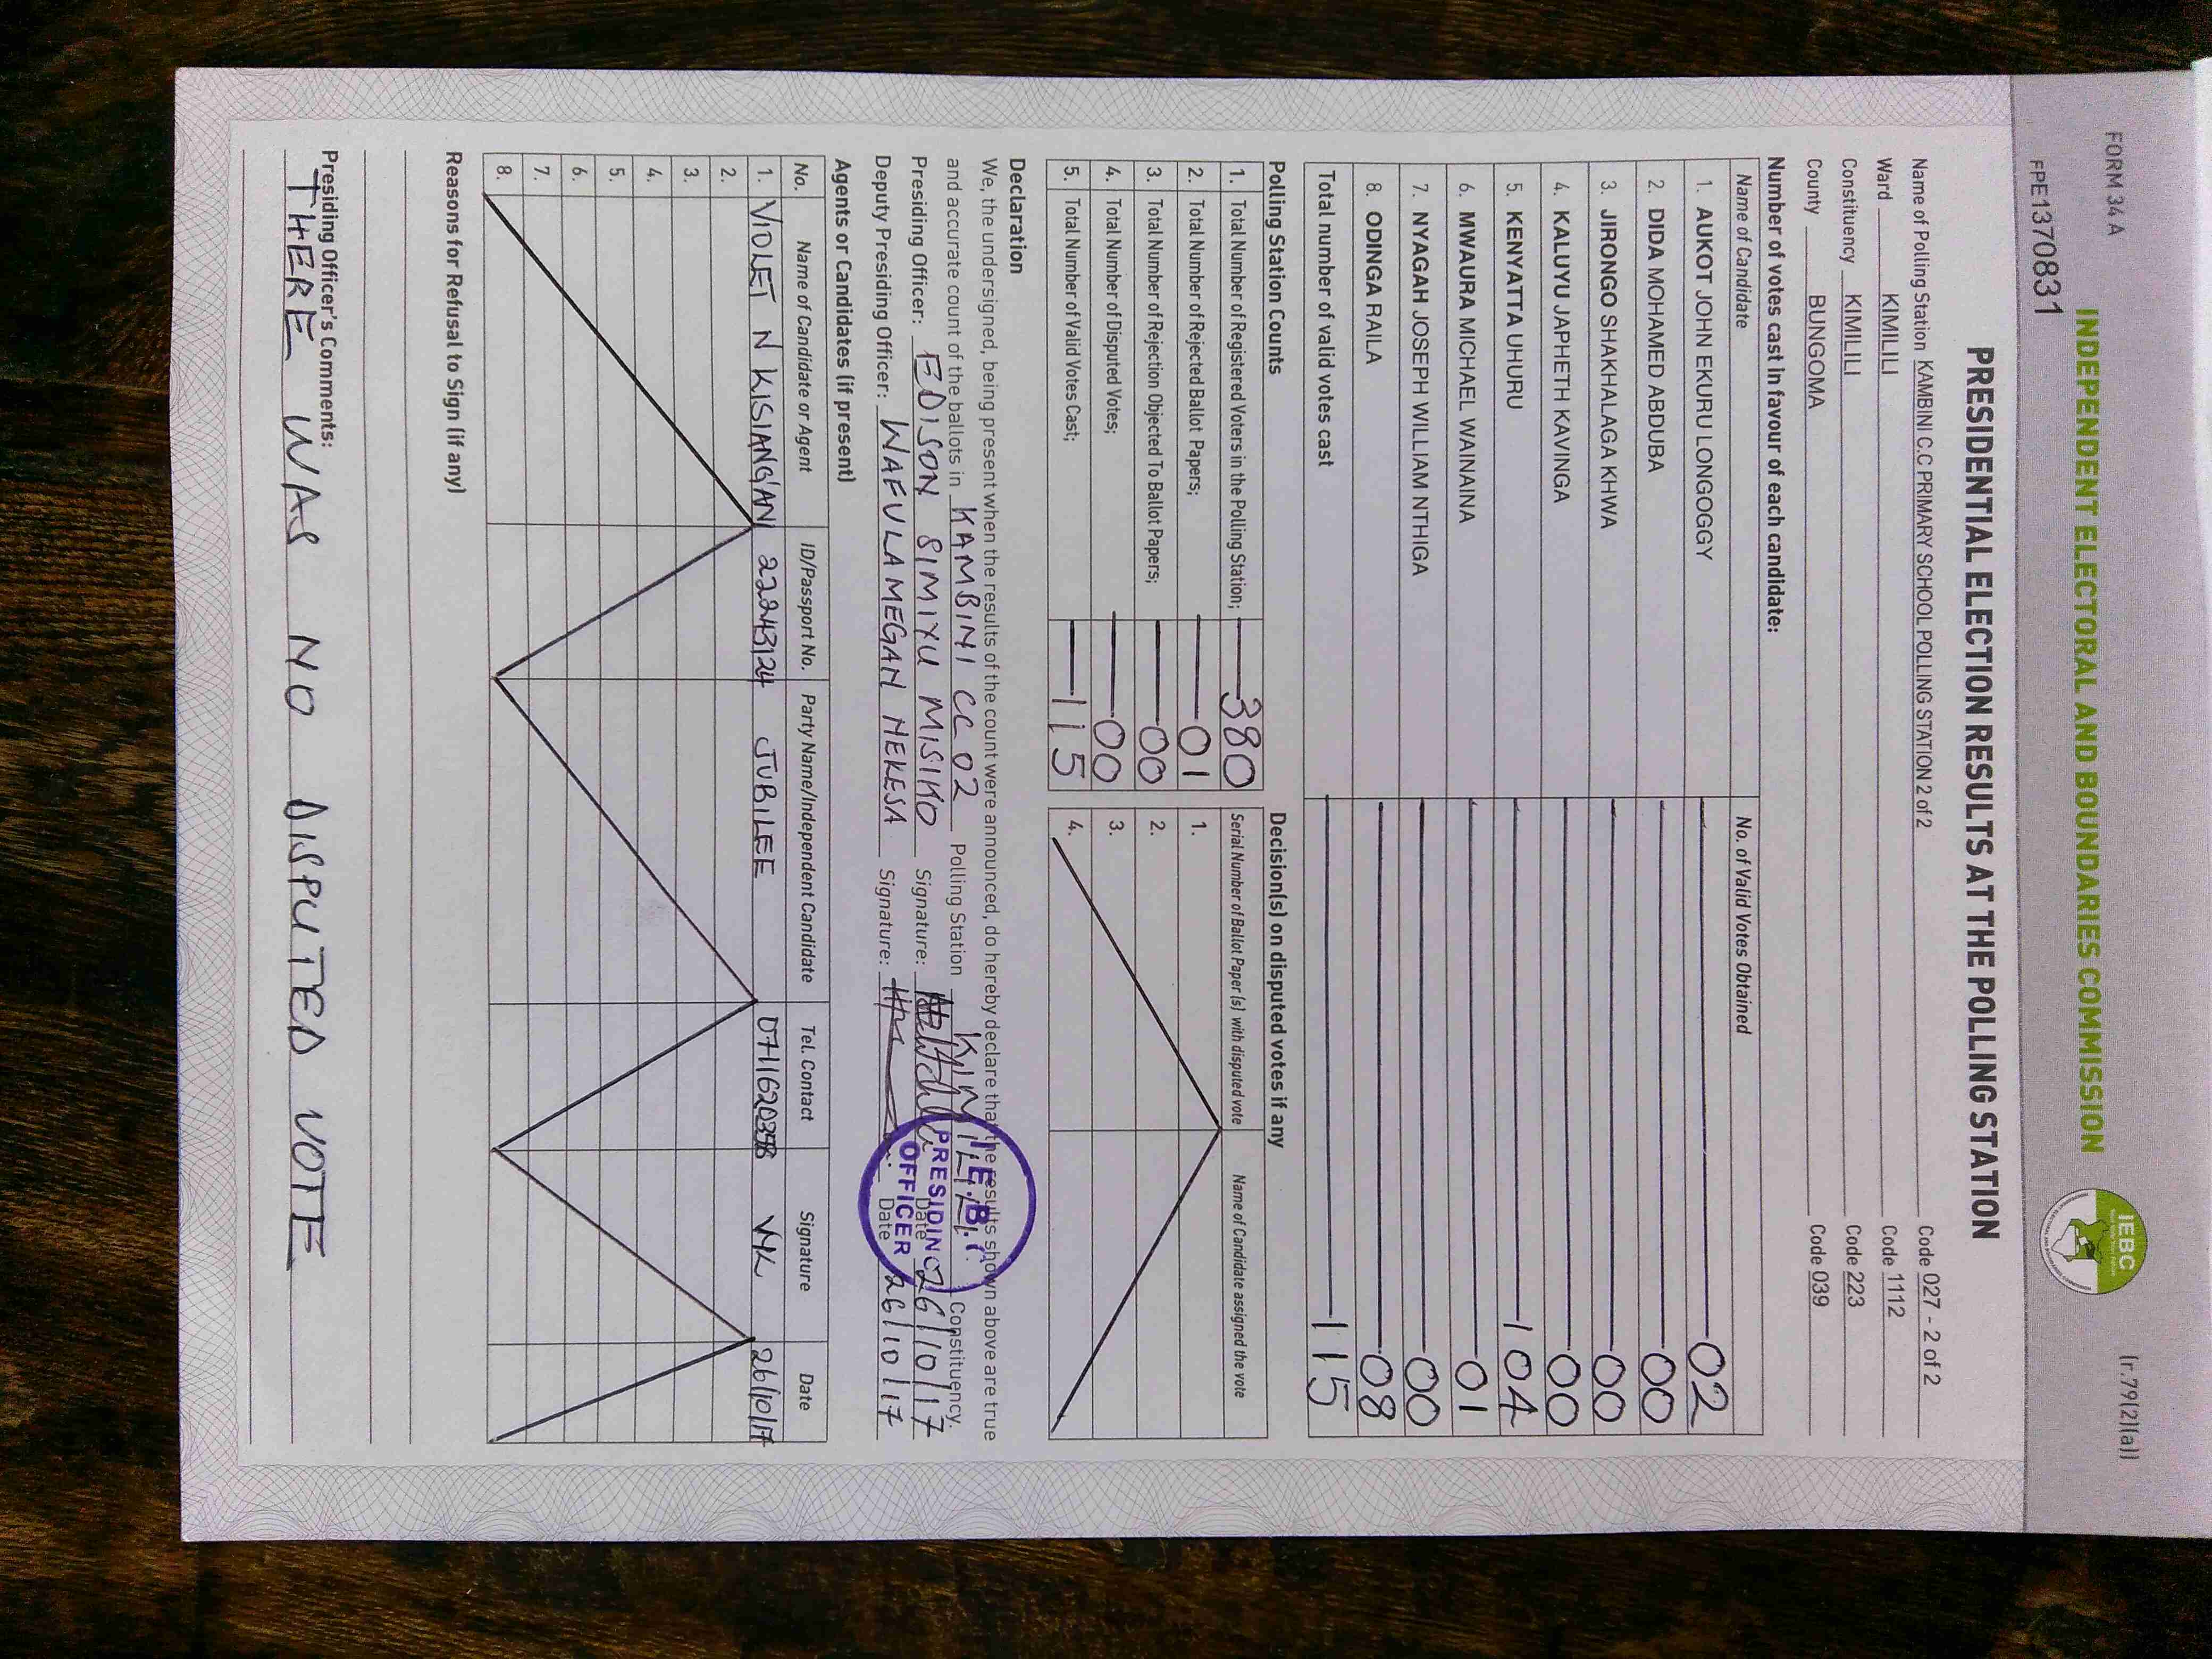 FORM 34 A
(r.79(2)(a))
INDEPENDENT ELECTORAL AND BOUNDARIES COMMISSION
IEBC
FPE1370831
PRESIDENTIAL ELECTION RESULTS AT THE POLLING STATION
Name of Polling Station KAMBINI C.C PRIMARY SCHOOL POLLING STATION 2 of 2 Code 027 - 2 of 2
Ward KIMILILI Code 1112
Constituency KIMILILI Code 223
County BUNGOMA Code 039
Number of votes cast in favour of each candidate:
Name of Candidate No. of Valid Votes Obtained
1. AUKOT JOHN EKURU LONGOGGY 02
2. DIDA MOHAMED ABDUBA 00
3. JIRONGO SHAKHALAGA KHWA 00
4. KALUYU JAPHETH KAVINGA 00
5. KENYATTA UHURU 104
6. MWAURA MICHAEL WAINAINA 01
7. NYAGAH JOSEPH WILLIAM NTHIGA 00
8. ODINGA RAILA 08
Total number of valid votes cast 115
Polling Station Counts Decision(s) on disputed votes if any
1. Total Number of Registered Voters in the Polling Station; 380 Serial Number of Ballot Paper (s) with disputed vote Name of Candidate assigned the vote
2. Total Number of Rejected Ballot Papers; 01 1.
3. Total Number of Rejection Objected To Ballot Papers; 00 2.
4. Total Number of Disputed Votes; 00 3.
5. Total Number of Valid Votes Cast; 115 4.
Declaration
We, the undersigned, being present when the results of the count were announced, do hereby declare that the results shown above are true
and accurate count of the ballots in KAMBINI CC 02 Polling Station KIMILILI Constituency.
Presiding Officer: EDISON SIMIYU MISIKO Signature: Date 26/10/17
Deputy Presiding Officer: WAFULA MEGAN NEKESA Signature: Date 26/10/17
I.E.B.C
PRESIDING
OFFICER
Agents or Candidates (if present)
No. Name of Candidate or Agent ID/Passport No. Party Name/Independent Candidate Tel. Contact Signature Date
1. VIOLET N KISIANG'ANI 22243124 JUBILEE VYK 26/10/17
2.
3.
4.
5.
6.
7.
8.
Reasons for Refusal to Sign (if any)
Presiding Officer's Comments:
THERE WAS NO DISPUTED VOTE